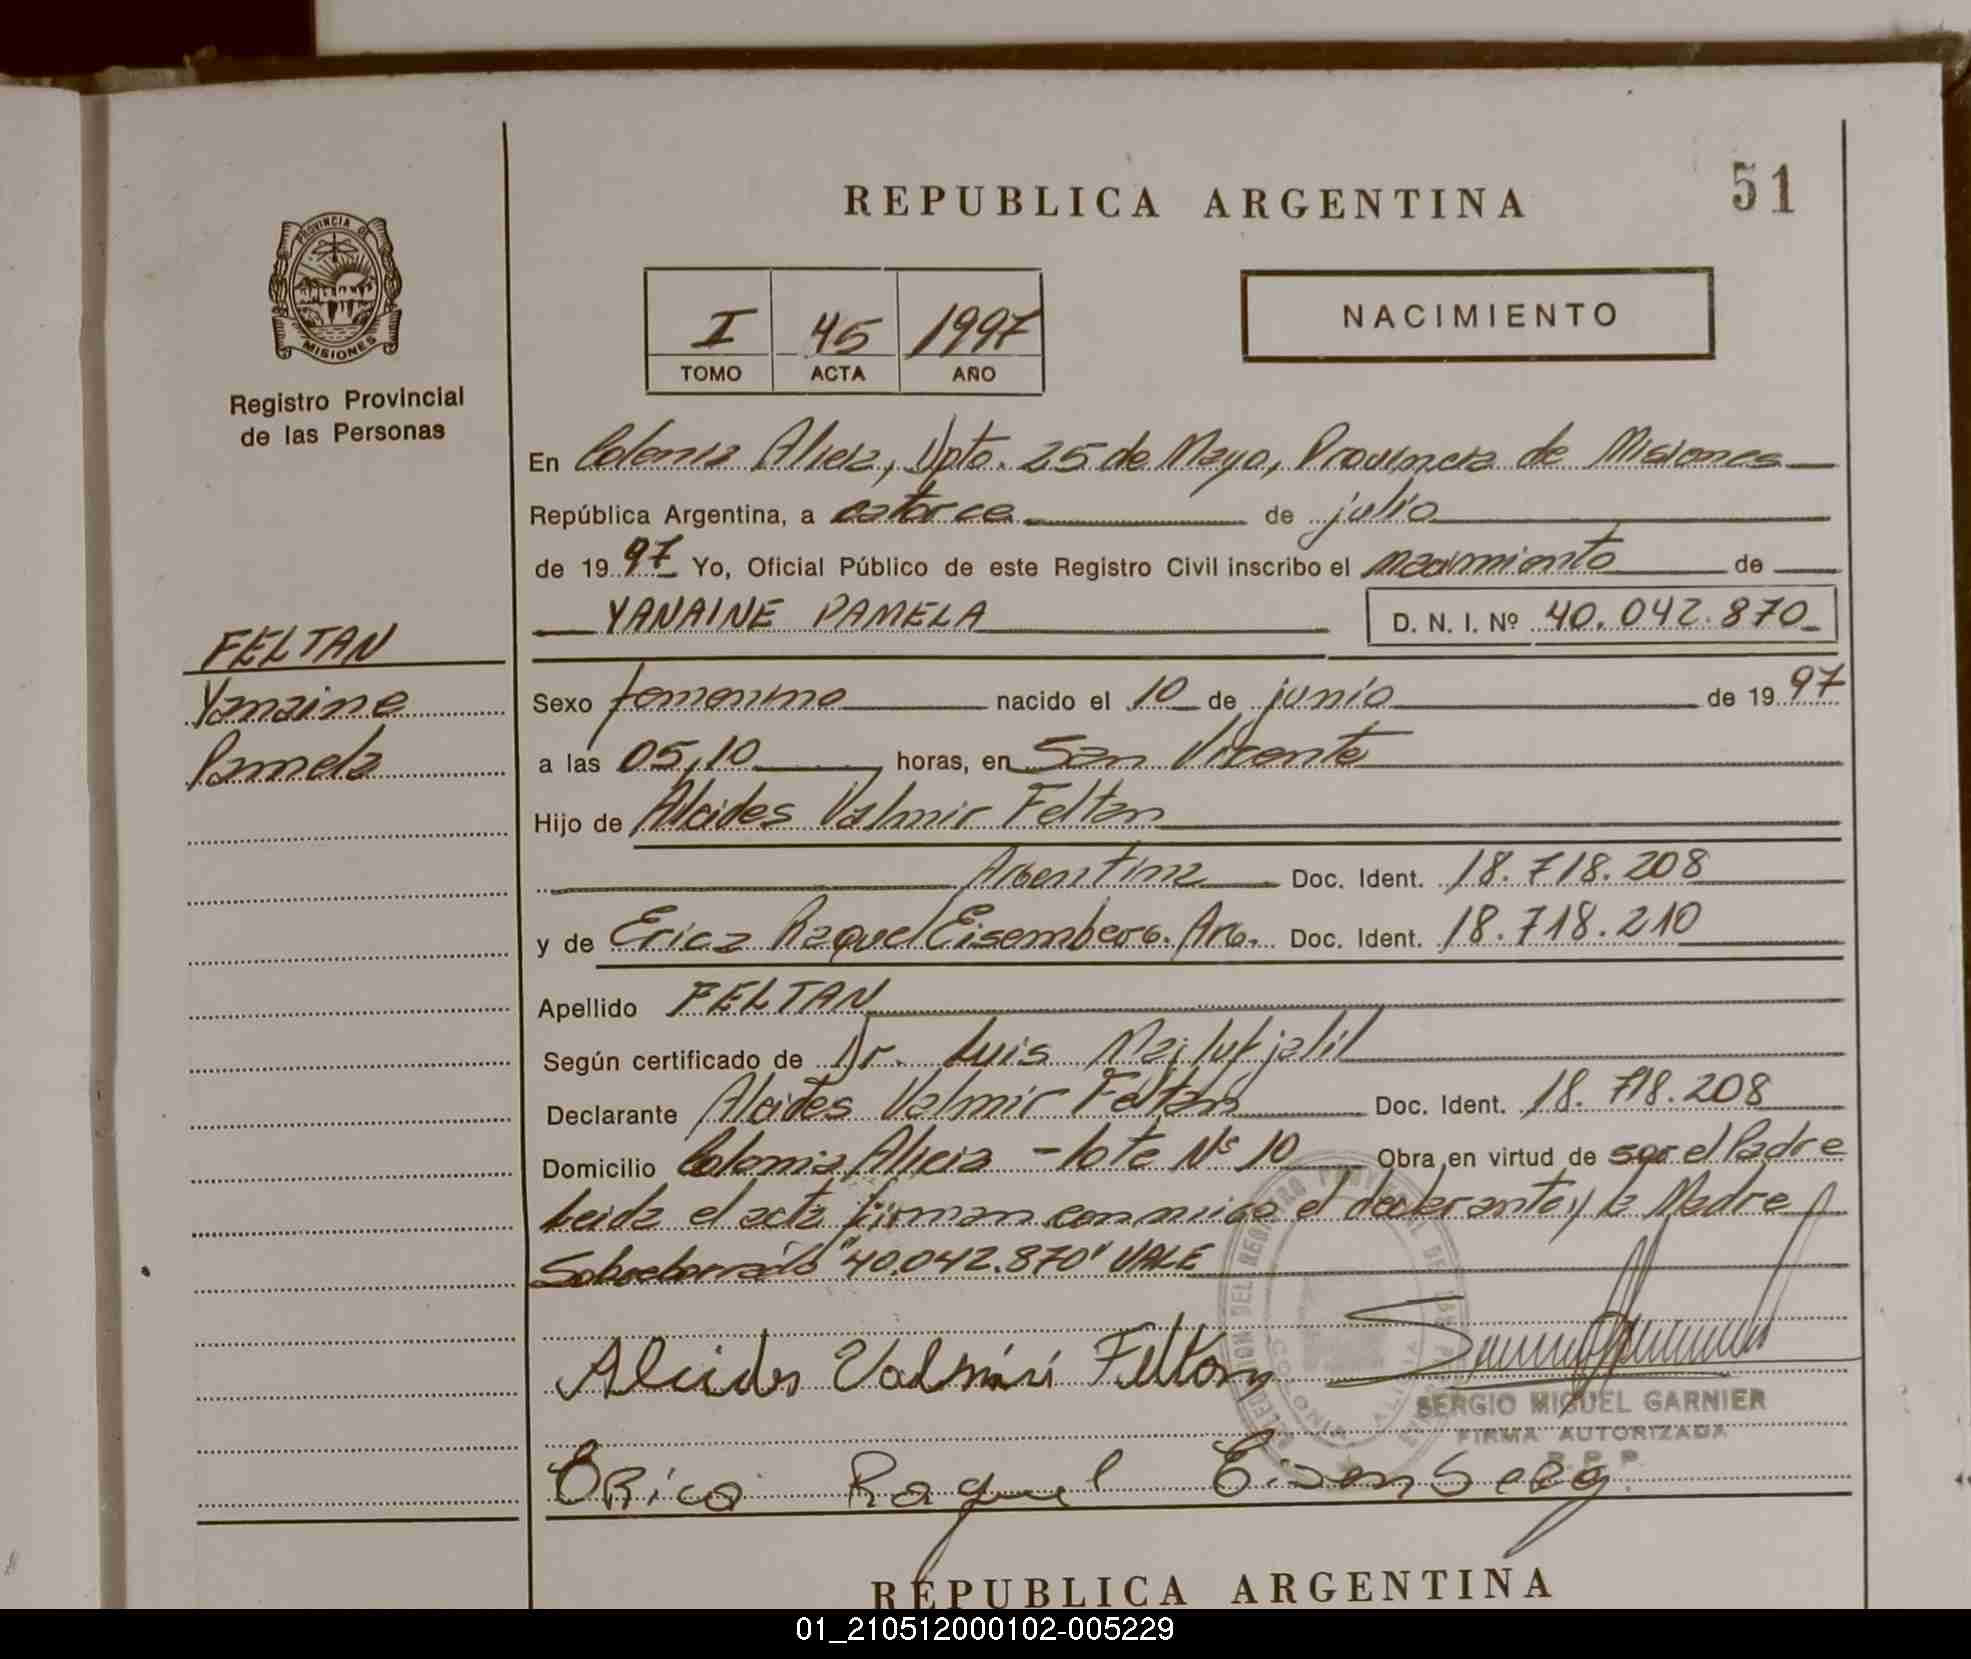 REPUBLICA ARGENTINA
51
PROVINCIA DE
MISIONES
Registro Provincial
de las Personas
I 45 1997
TOMO ACTA AÑO
NACIMIENTO
En Colonia Alicia, Dpto. 25 de Mayo, Provincia de Misiones
República Argentina, a catorce de julio
de 1997 Yo, Oficial Público de este Registro Civil inscribo el nacimiento de
YANAINE PAMELA
D. N. I. Nº 40.042.870
FELTAN
Yanaine
Pamela
Sexo femenino nacido el 10 de junio de 1997
a las 05,10 horas, en San Vicente
Hijo de Alcides Valmir Feltan
Argentina Doc. Ident. 18.718.208
y de Erica Raquel Eisemberg. Arg. Doc. Ident. 18.718.210
Apellido FELTAN
Según certificado de Dr. Luis
Declarante Alcides Valmir Feltan Doc. Ident. 18.718.208
Domicilio Colonia Alicia - lote Nº 10 Obra en virtud de ser el Padre
Leida el acta firman conmigo el declarante y la Madre
Sobreborrado "40.042.870" VALE
Alcides Valmir Feltan
SERGIO MIGUEL GARNIER
FIRMA AUTORIZADA
R. P. P.
Erica Raquel Eisenberg
REPUBLICA ARGENTINA
01_210512000102-005229